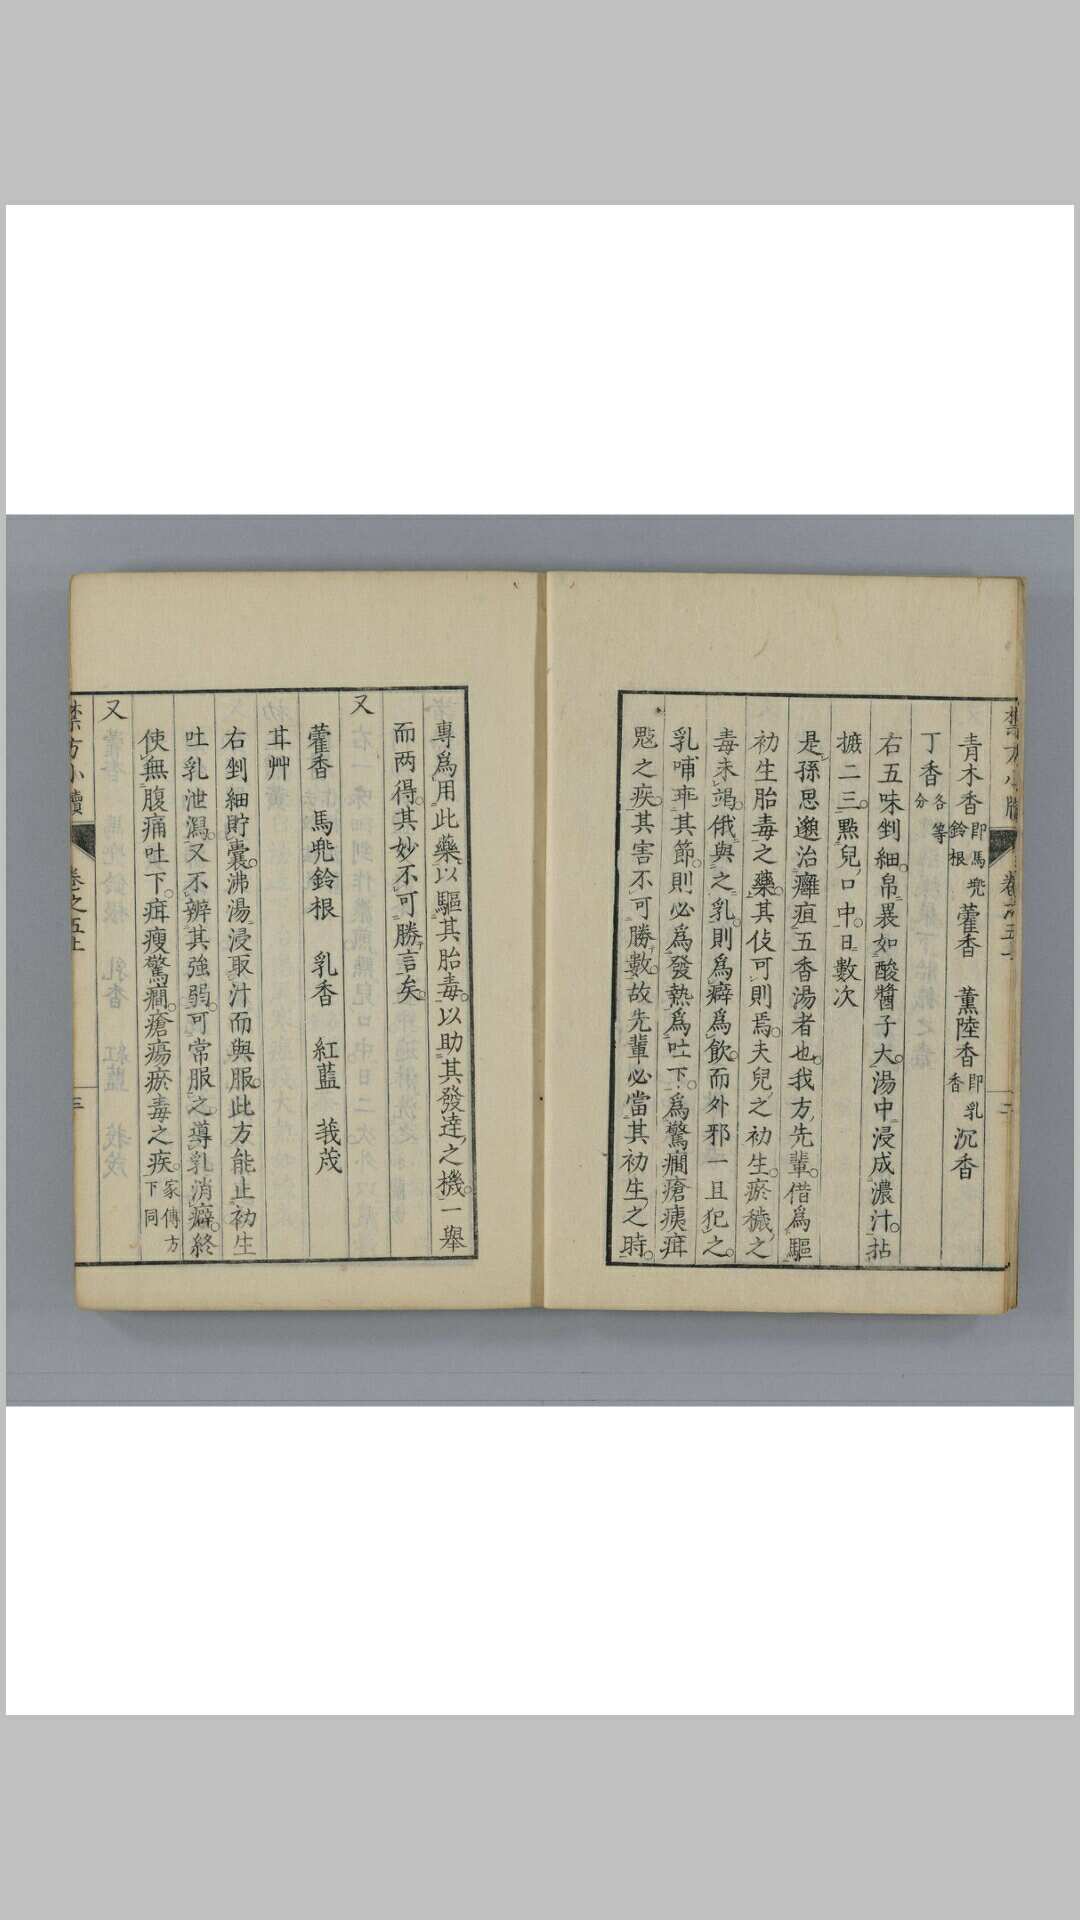 青木香即馬兠鈴根 藿香 薰陸香即乳香 沉香
丁香各等分
右五味剉細。帛褁如酸醬子大。湯中浸成濃汁。拈
摭二三點兒口中。日數次
是孫思邈治癰疽五香湯者也。我方先輩。借為驅
初生胎毒之藥。其伎可則焉。夫兒之初生。瘀穢之
毒未竭。俄與之乳。則為癖為飲。而外邪一且犯之。
乳哺乖其節。則必為發熱為吐下。為驚癎瘡痍疳
魃之疾。其害不可勝數。故先輩必當其初生之時。
專為用此藥。以驅其胎毒。以助其發達之機。一舉
而两得。其妙不可勝言矣。
又
藿香 馬兠鈴根 乳香 紅藍 莪茂
甘艸
右剉細貯囊。沸湯浸取汁而與服。此方能止初生
吐乳泄瀉。又不辨其強弱。可常服之。導乳消癖。終
使無腹痛吐下。疳瘦驚癎。瘡瘍瘀毒之疾。家傳方下同
又
禁方小牘 卷之五上 三